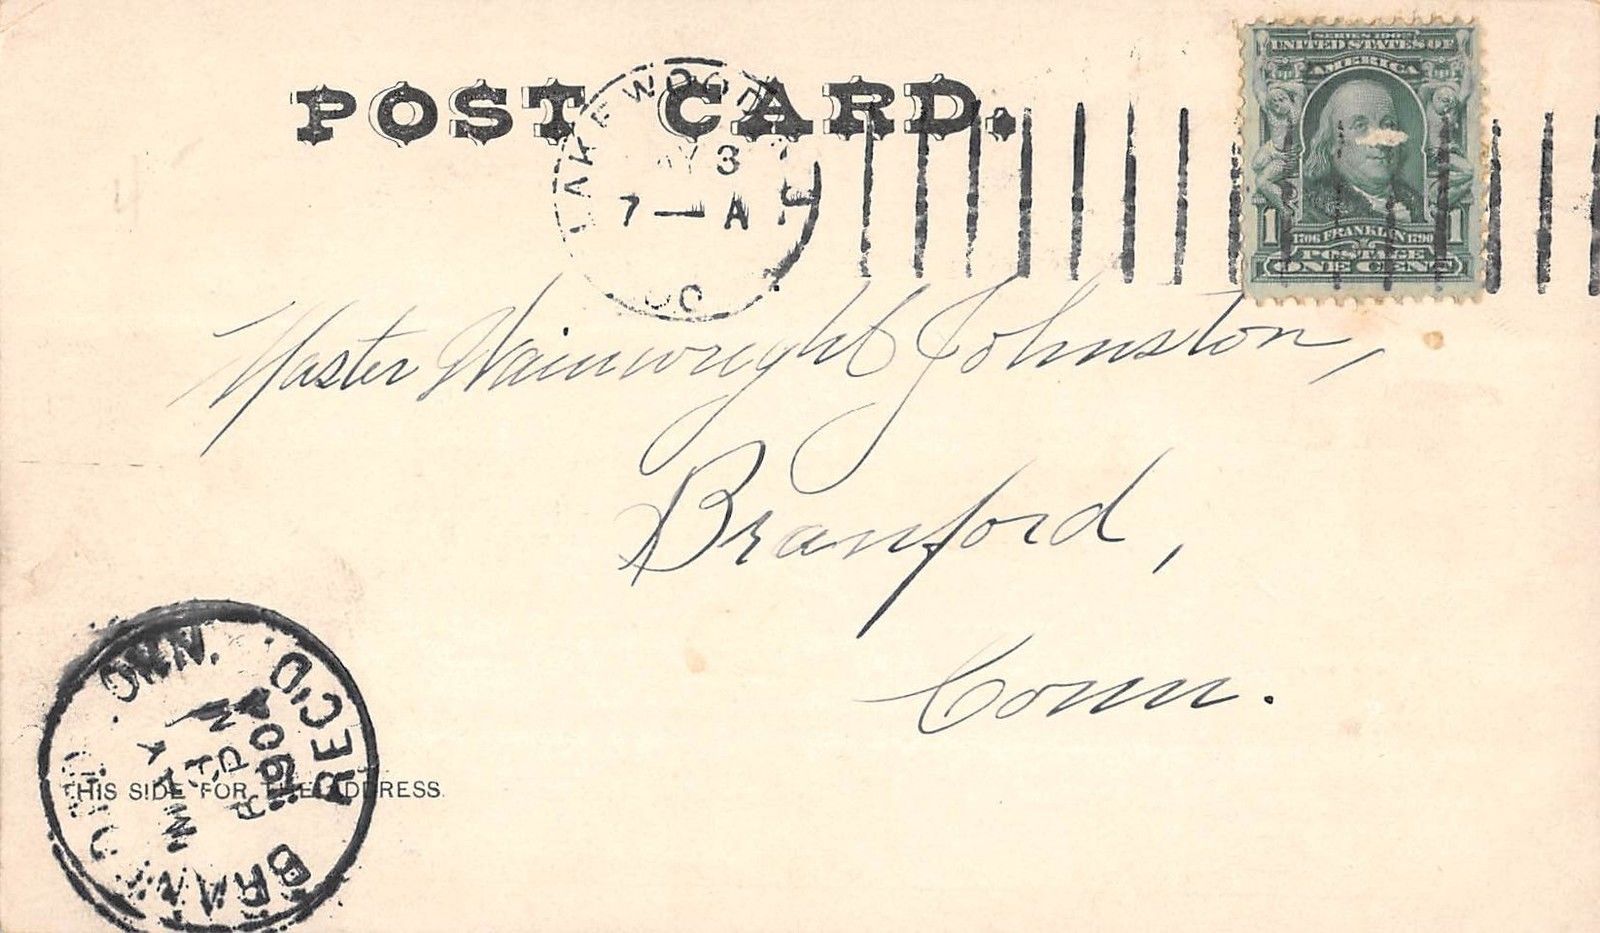 POST CARD.
LAKEWOOD
3
7 — A
SERIES 1902
UNITED STATES OF
AMERICA
1 1706 FRANKLIN 1790 1
POSTAGE
ONE CENT
Master Wainwright Johnston,
Branford,
Conn.
THIS SIDE FOR THE ADDRESS
REC'D.
MAY